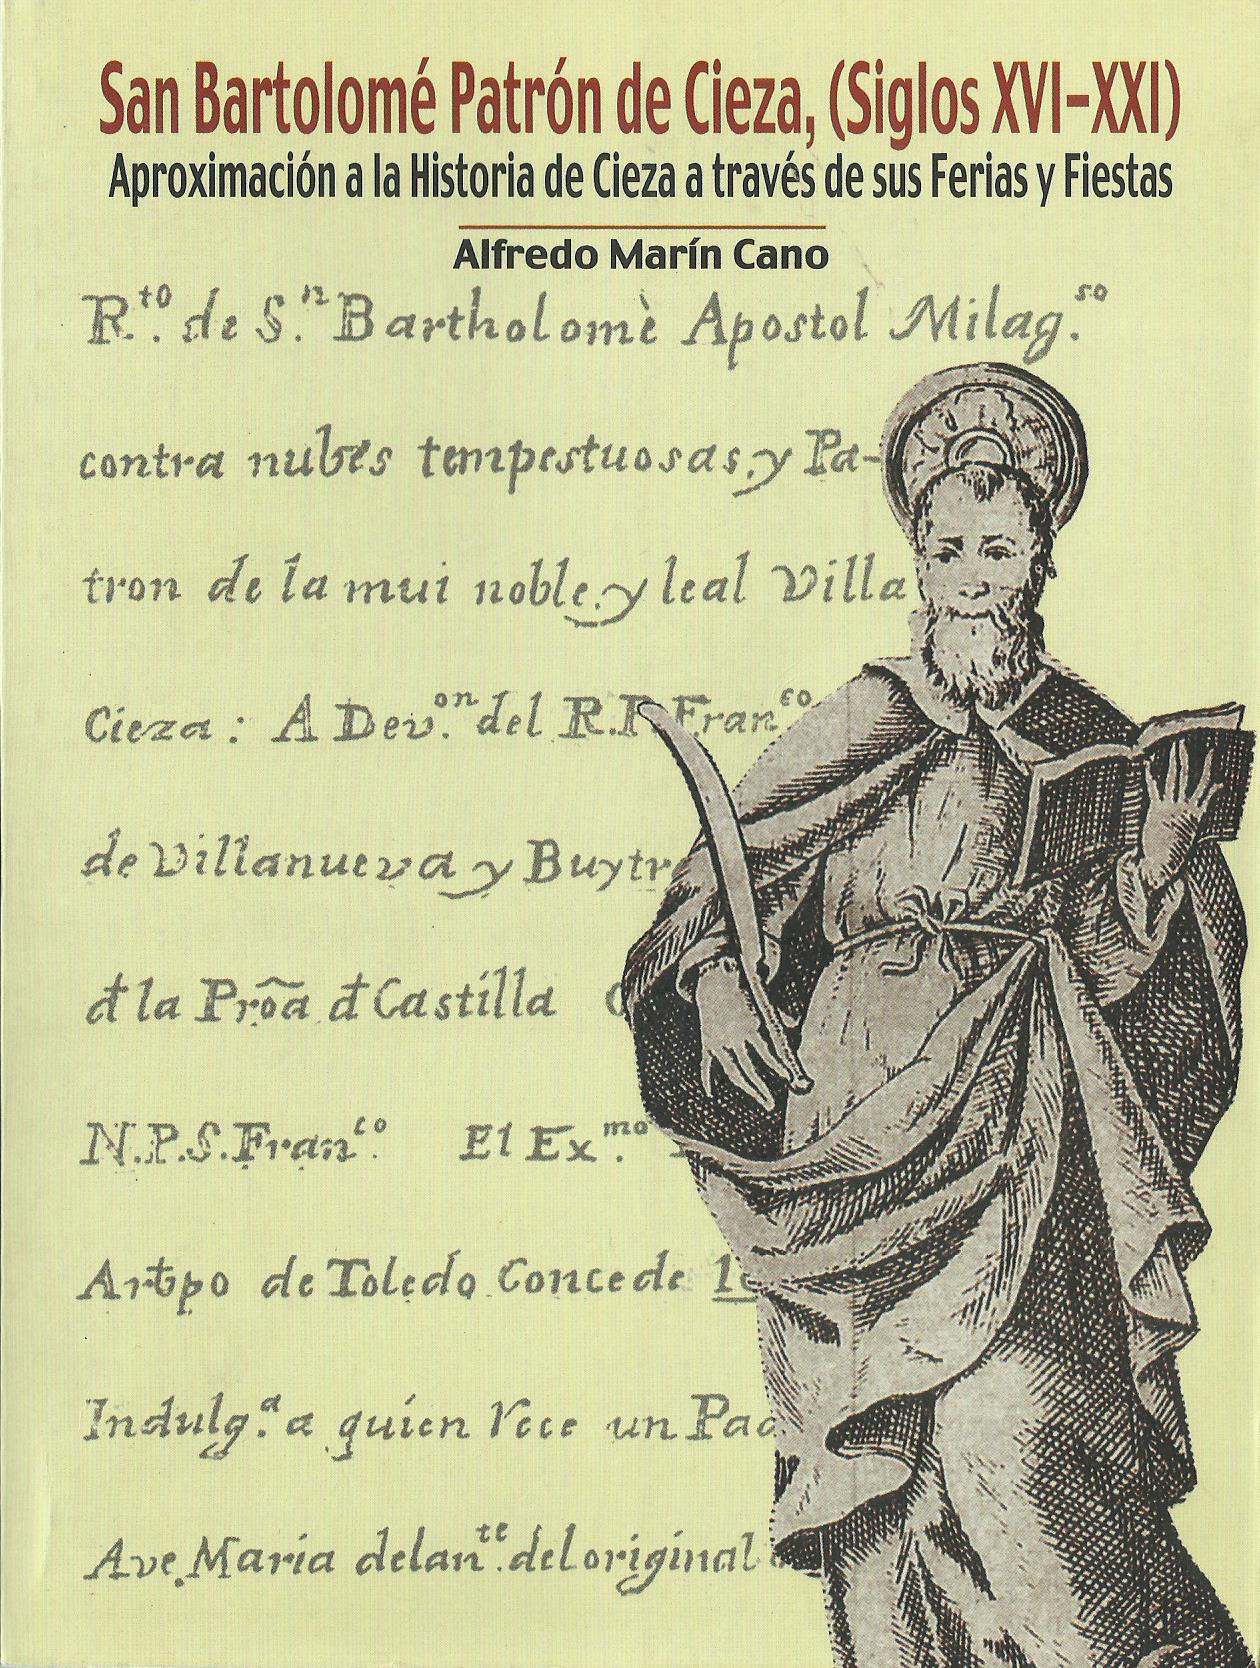 San Bartolomé Patrón de Cieza, (Siglos XVI–XXI)
Aproximación a la Historia de Cieza a través de sus Ferias y Fiestas
Alfredo Marín Cano
R.to de S.n Bartholomè Apostol Milag.so
contra nubes tempestuosas, y Pa-
tron de la mui noble, y leal Villa
Cieza: A Dev.on del R.P. Fran.co
de Villanueva y Buytr
đ la Prõa đ Castilla
N.P.S. Fran.co El Ex.mo
Artpo de Toledo Concede
Indulg.a a quien rece un Pad
Ave Maria delan.te del original